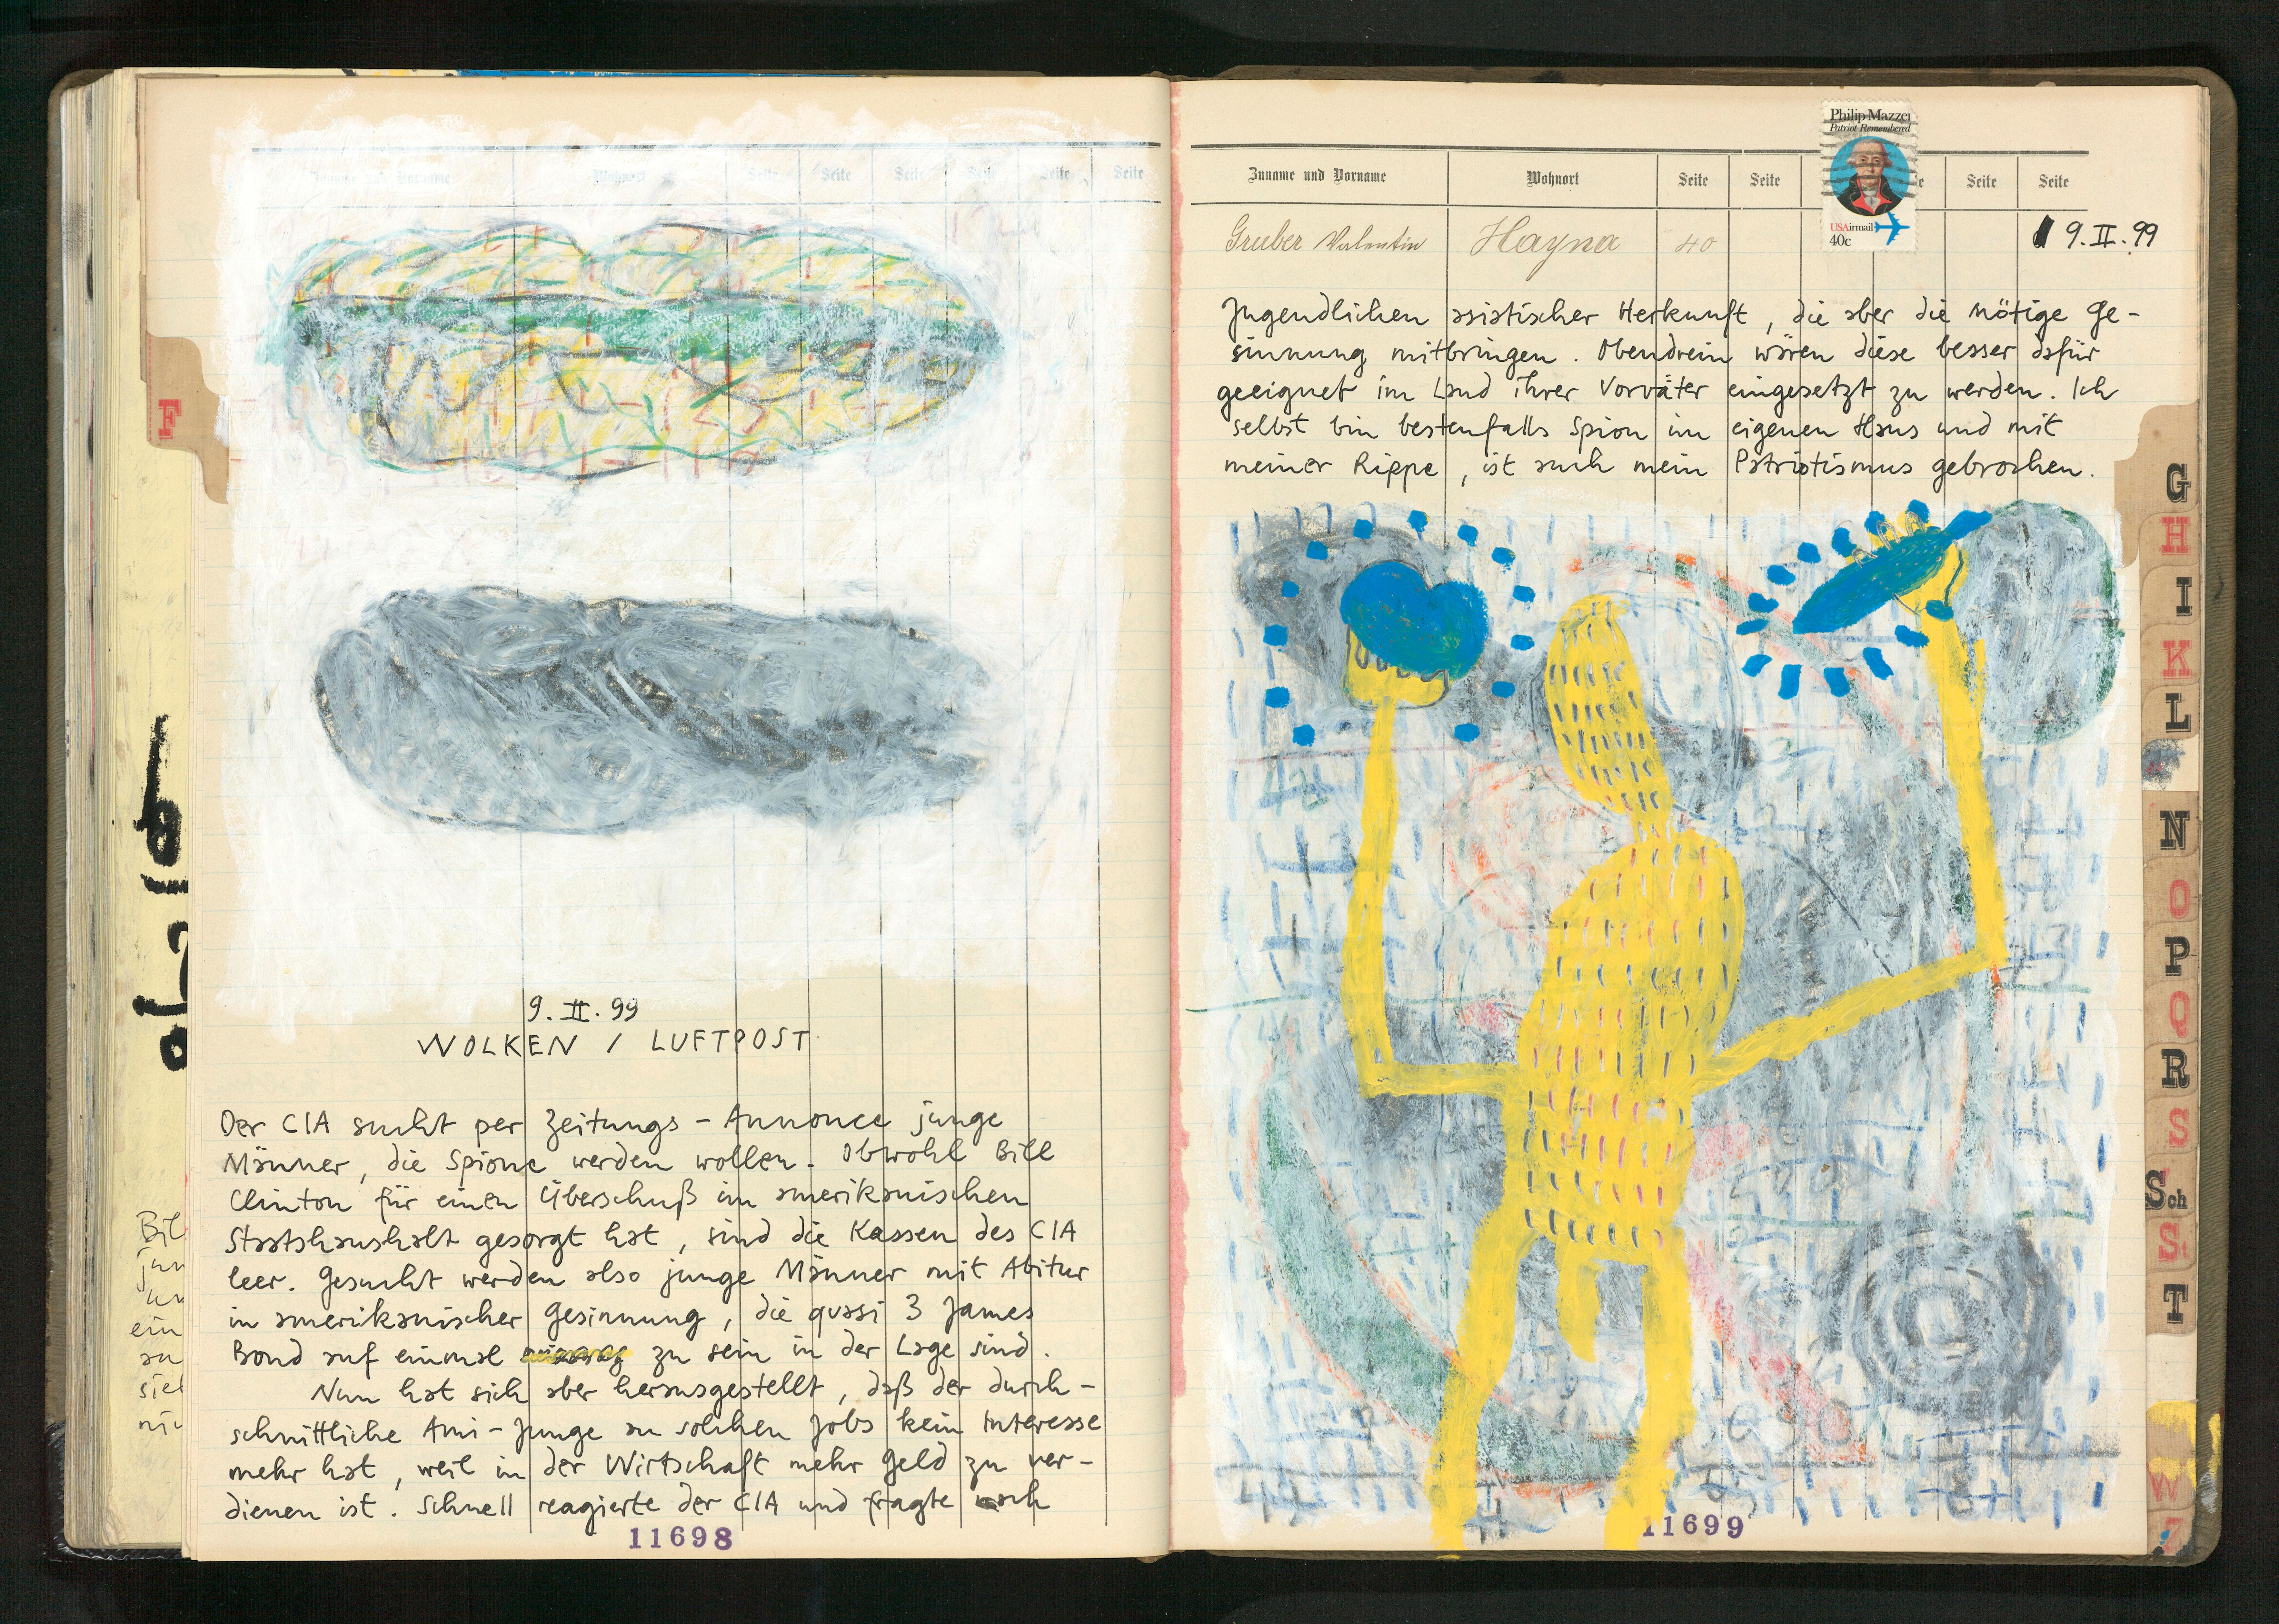 Zuname und Vorname Wohnort Seite Seite Seite Seite Seite Seite
F
9. II. 99
WOLKEN / LUFTPOST
Der CIA sucht per Zeitungs - Annonce junge
Männer, die Spione werden wollen. Obwohl Bill
Clinton für einen Überschuß im amerikanischen
Staatshaushalt gesorgt hat, sind die Kassen des CIA
leer. Gesucht werden also junge Männer mit Abitur
in amerikanischer Gesinnung, die quasi 3 James
Bond auf einmal zu sein in der Lage sind.
Nun hat sich aber herausgestellt, daß der durch-
schnittliche Ami-Junge an solchen Jobs kein Interesse
mehr hat, weil in der Wirtschaft mehr Geld zu ver-
dienen ist. Schnell reagierte der CIA und fragte nach
11698
Bil
jun
ein
an
siel
Philip Mazzei
Patriot Remembered
USAirmail
40c
Zuname und Vorname Wohnort Seite Seite Seite Seite
Gruber Valentin Hayna 40
9. II. 99
Jugendlichen asiatischer Herkunft, die aber die nötige Ge-
sinnung mitbringen. Obendrein wären diese besser dafür
geeignet im Land ihrer Vorväter eingesetzt zu werden. Ich
selbst bin bestenfalls Spion im eigenen Haus und mit
meiner Rippe, ist auch mein Patriotismus gebrochen.
11699
G
H
I
K
L
N
O
P
Q
R
S
Sch
St
T
W
Z